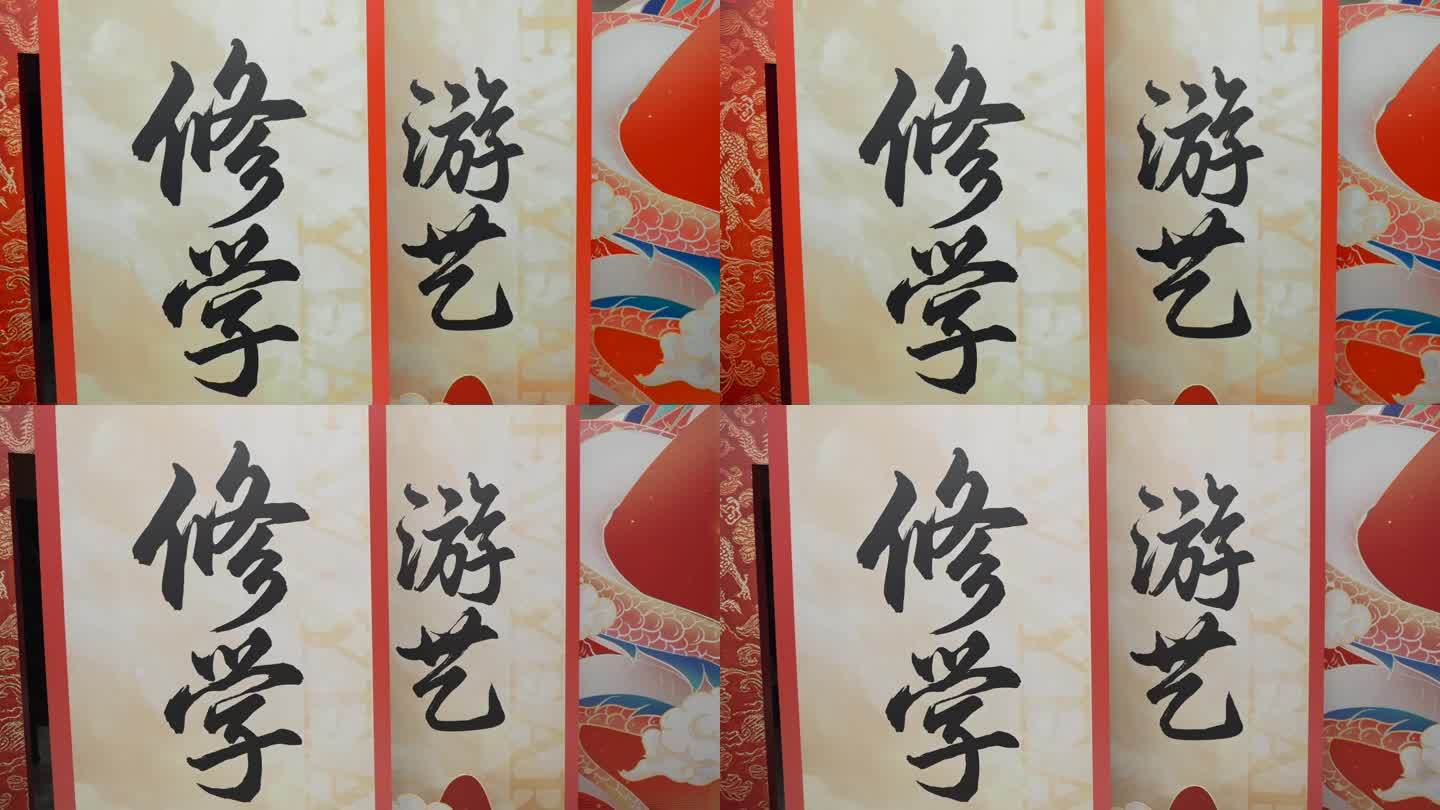 修学
游艺
修学
游艺
修学
游艺
修学
游艺